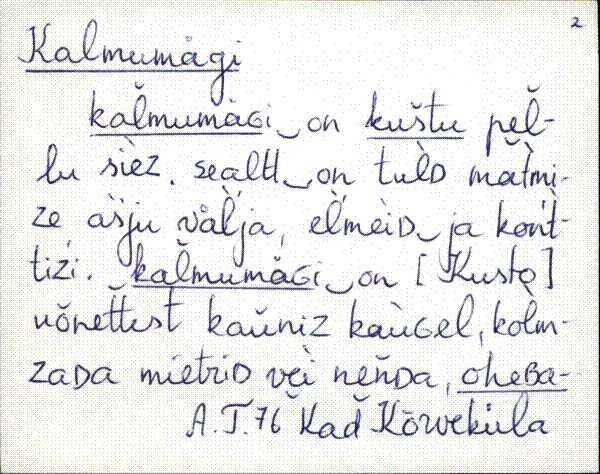 2
Kalmumägi
kal̆mumäɢi‿on kuštu pĕl̆-
lu sièz. sealtt‿on tulᴅ mătmi-
ze ašju väl̆ja, el̆mèiᴅ‿ja kont̀-
tizi. kal̆mumäɢi‿on [Kusta]
võnettest kaŭniz kaùɢel, kòlm-
zaᴅa mietriᴅ vèi nĕnᴅa, oheʙa-
A.T.76 Kad Kõrveküla